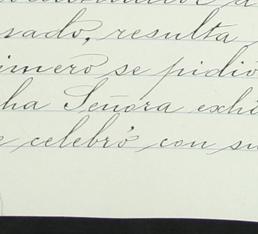 sado, resulta
imero se pidió
ha Señora exhi
e celebró con su